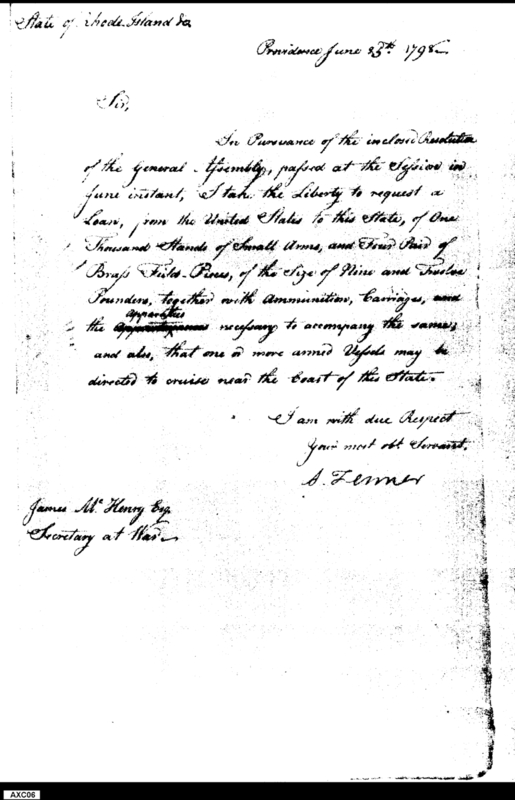 State of Rhode Island &c
Providence June 23th 1798
Sir,
In Pursuance of the inclosed Resolution
of the General Assembly, passed at the Session in
June instant, I take the Liberty to request a
Loan, from the United States to this State, of One
Thousand Stands of Small Arms, and Four Pair of
Brass Field-Pieces, of the Size of Nine and Twelve
Pounders, together with Ammunition, Carriages, and
Apparatus
the necessary to accompany the same;
and also, that one or more armed Vessels may be
directed to cruise near the Coast of this State.
I am with due Respect
Your most obt Servant.
A. Fenner
James Mc Henry Esq
Secretary at War
AXC06